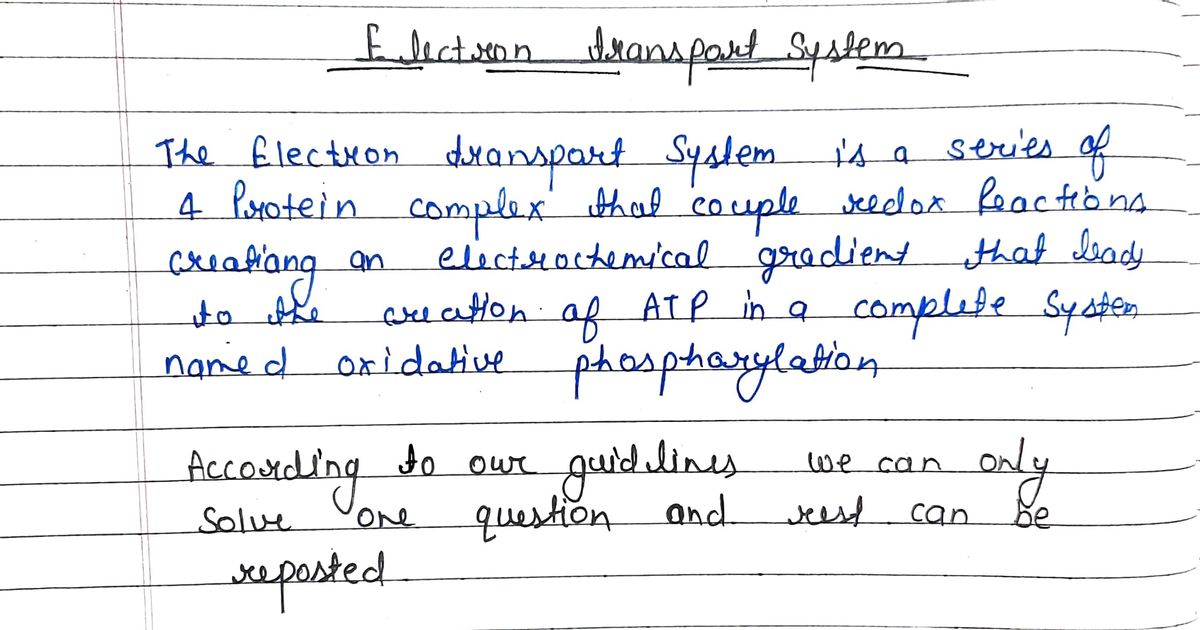 Electron transport System
The Electron transport System is a series of
4 Protein complex that couple redox Reactions
creatiang an electrochemical gradient that leads
to the creation of ATP in a complete System
named oxidative phosphorylation
According to our guidlines we can only
Solve one question and rest can be
reposted